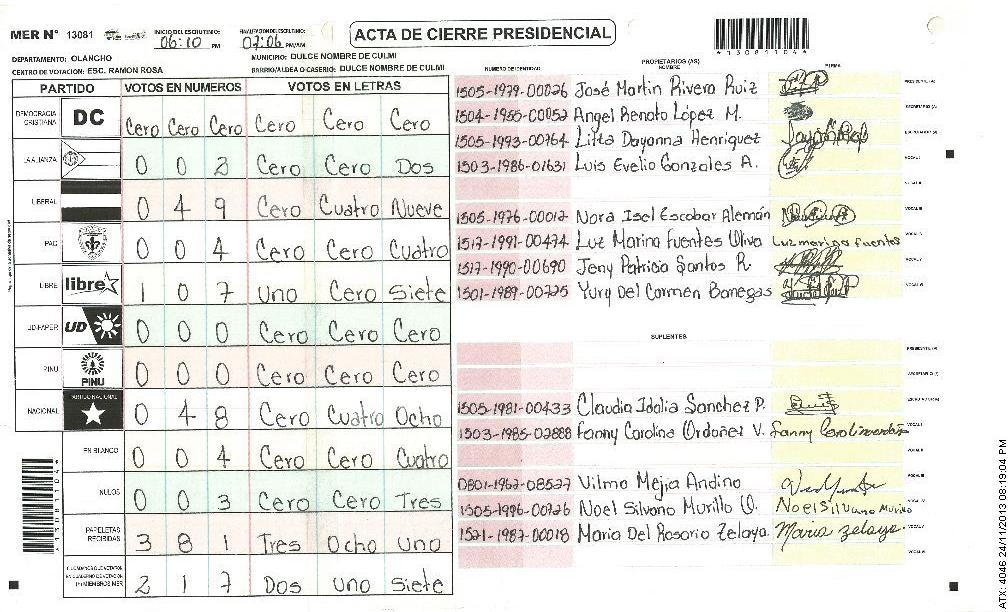 MER N° 13081 INICIO DEL ESCRUTINIO: 06:10 PM FINALIZACION DEL ESCRUTINIO: 07:06 PM/AM
ACTA DE CIERRE PRESIDENCIAL
*130811044*
DEPARTAMENTO: OLANCHO MUNICIPIO: DULCE NOMBRE DE CULMI
CENTRO DE VOTACION: ESC. RAMON ROSA BARRIO/ALDEA O CASERIO: DULCE NOMBRE DE CULMI
PARTIDO VOTOS EN NUMEROS VOTOS EN LETRAS
DEMOCRACIA CRISTIANA DC Cero Cero Cero Cero Cero Cero
LA ALIANZA 0 0 2 Cero Cero Dos
LIBERAL 0 4 9 Cero Cuatro Nueve
PAC 0 0 4 Cero Cero Cuatro
LIBRE libre 1 0 7 Uno Cero Siete
UD-FAPER UD 0 0 0 Cero Cero Cero
PINU PINU 0 0 0 Cero Cero Cero
NACIONAL PARTIDO NACIONAL 0 4 8 Cero Cuatro Ocho
EN BLANCO 0 0 4 Cero Cero Cuatro
NULOS 0 0 3 Cero Cero Tres
PAPELETAS RECIBIDAS 3 8 1 Tres Ocho Uno
CIUDADANOS QUE VOTARON EN CUADERNO DE VOTACION (+) MIEMBROS MER 2 1 7 Dos Uno Siete
PROPIETARIOS (AS)
NUMERO DE IDENTIDAD NOMBRE FIRMA
1505-1979-00026 José Martin Rivera Ruiz PRESIDENTE (A)
1504-1955-00052 Angel Renato López M. SECRETARIO (A)
1505-1993-00764 Litza Dayanna Henriquez ESCRUTADOR (A)
1503-1986-01631 Luis Evelio Gonzales A. VOCAL I
VOCAL II
1505-1976-00012 Nora Isel Escobar Alemán VOCAL III
1517-1991-00474 Luz Marina Fuentes Oliva Luz marina fuentes VOCAL IV
1517-1990-00690 Jeny Patricia Santos R. VOCAL V
1501-1989-00725 Yury Del Carmen Banegas VOCAL VI
SUPLENTES
PRESIDENTE (A)
SECRETARIO (A)
1505-1981-00433 Claudia Idalia Sanchez P. ESCRUTADOR (A)
1503-1985-02888 Fanny Carolina Ordoñez V. VOCAL I
VOCAL II
0801-1962-08527 Vilmo Mejia Andino VOCAL III
1505-1996-00226 Noel Silvano Murillo O. Noel Silvano Murillo VOCAL IV
1521-1987-00018 Maria Del Rosario Zelaya Maria Zelaya. VOCAL V
VOCAL VI
ATX: 4046 24/11/2013 08:19:04 PM